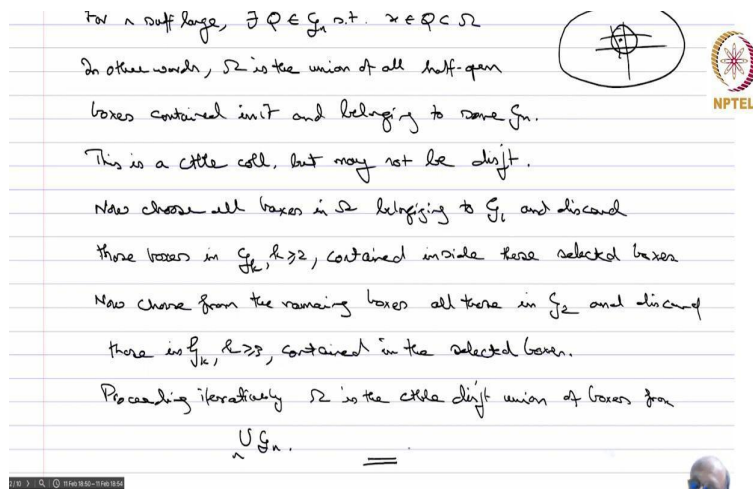 For n suff large, ∃ Q ∈ 𝒢n s.t. x ∈ Q ⊂ Ω
In other words, Ω is the union of all half-open
boxes contained in it and belonging to some 𝒢n.
NPTEL
This is a ctble coll. but may not be disjt.
Now choose all boxes in Ω belonging to 𝒢1 and discard
those boxes in 𝒢k, k≥2, contained inside these selected boxes
Now choose from the remaing boxes all those in 𝒢2 and discard
those in 𝒢k, k≥3, contained in the selected boxes.
Proceeding iteratively Ω is the ctble disjt union of boxes from
∪n 𝒢n.
2/10 11 Feb 18:50 - 11 Feb 18:54